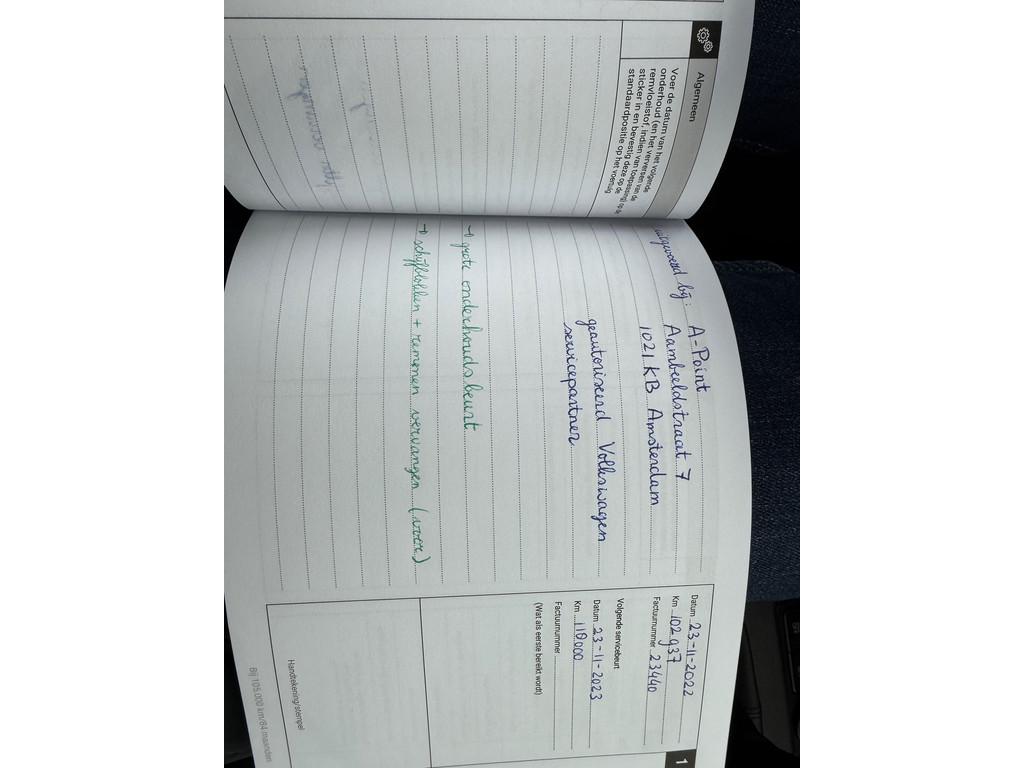 Algemeen
Voer de datum van het volgende
onderhoud (en het verversen van de
remvloeistof, indien van toepassing) op de
sticker in en bevestig deze op de
standaardpositie op het voertuig
uitgevoerd bij: A-Point
Aambeeldstraat 7
1021 KB Amsterdam
geautoriseerd Volkswagen
servicepartner
→ grote onderhoudsbeurt
→ schijfblokken + remmen vervangen (voor)
1
Datum 23-11-2022
Km 102937
Factuurnummer 23440
Volgende servicebeurt
Datum 23-11-2023
Km 110.000
Factuurnummer
(Wat als eerste bereikt wordt)
Handtekening/stempel
Bij 105.000 km/84 maanden